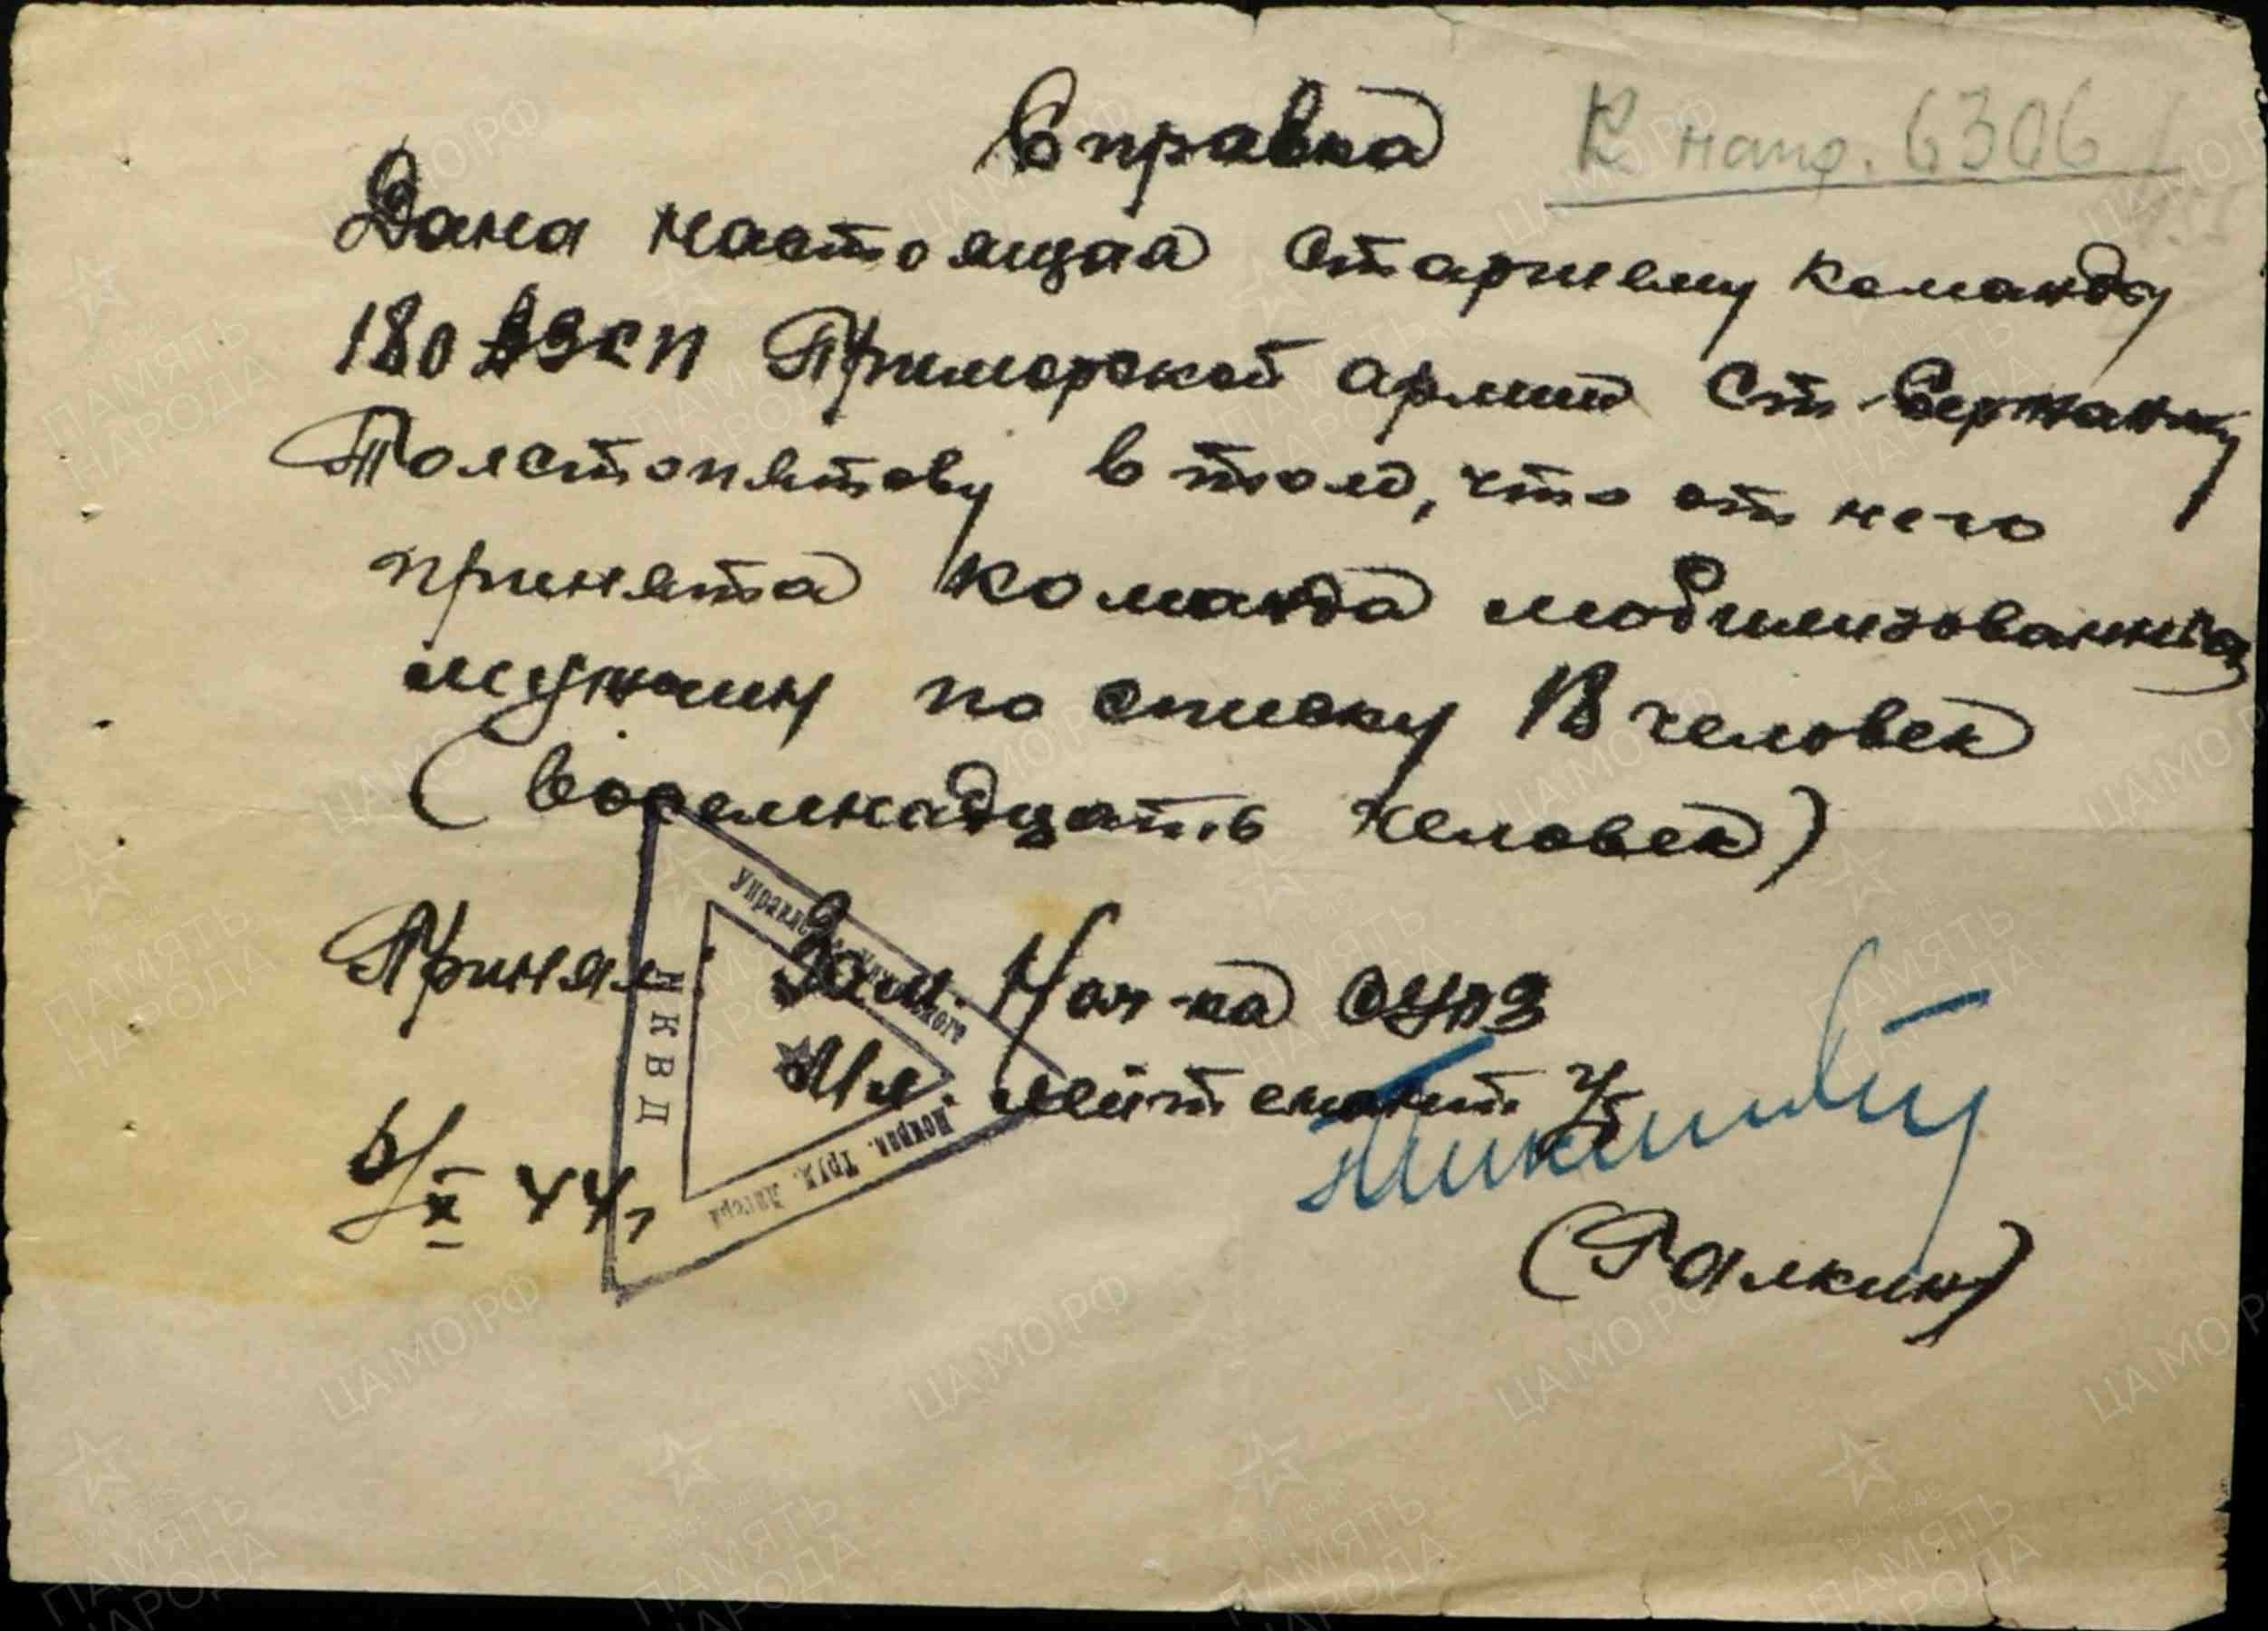 Справка
К напр. 6306
Дана настоящая старшему команды
180 АЗСП Приморской армии ст. Сержанту
Толстопятову в том, что от него
принята команда мобилизованных
мужчин по списку 18 человек
(восемнадцать человек)
Принял Зам. Нач-ка ОУРЗ
Мл. лейтенант
6/X 44 г
(Галкин)
НКВД
Исправ. Труд. Лагеря
ПАМЯТЬ НАРОДА
ЦАМО РФ